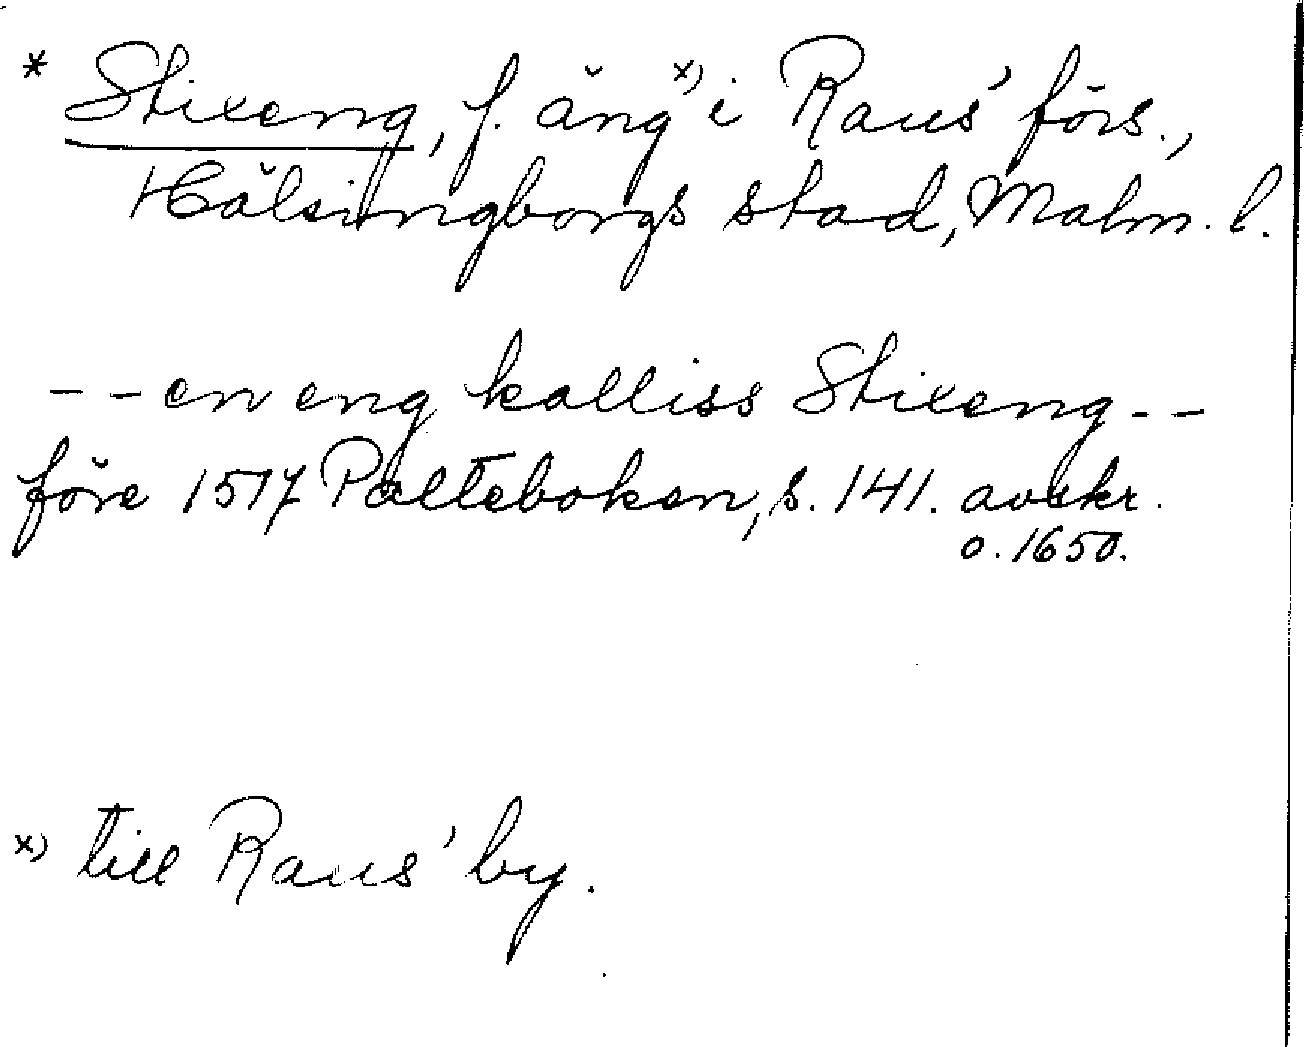 * Stixeng, f. äng x) i Raus' förs.,
Hälsingborgs stad, Malm. l.
- - en eng kalliss Stixeng - -
före 1517 Palteboken, s. 141. avskr.
o. 1650.
x) till Raus' by.